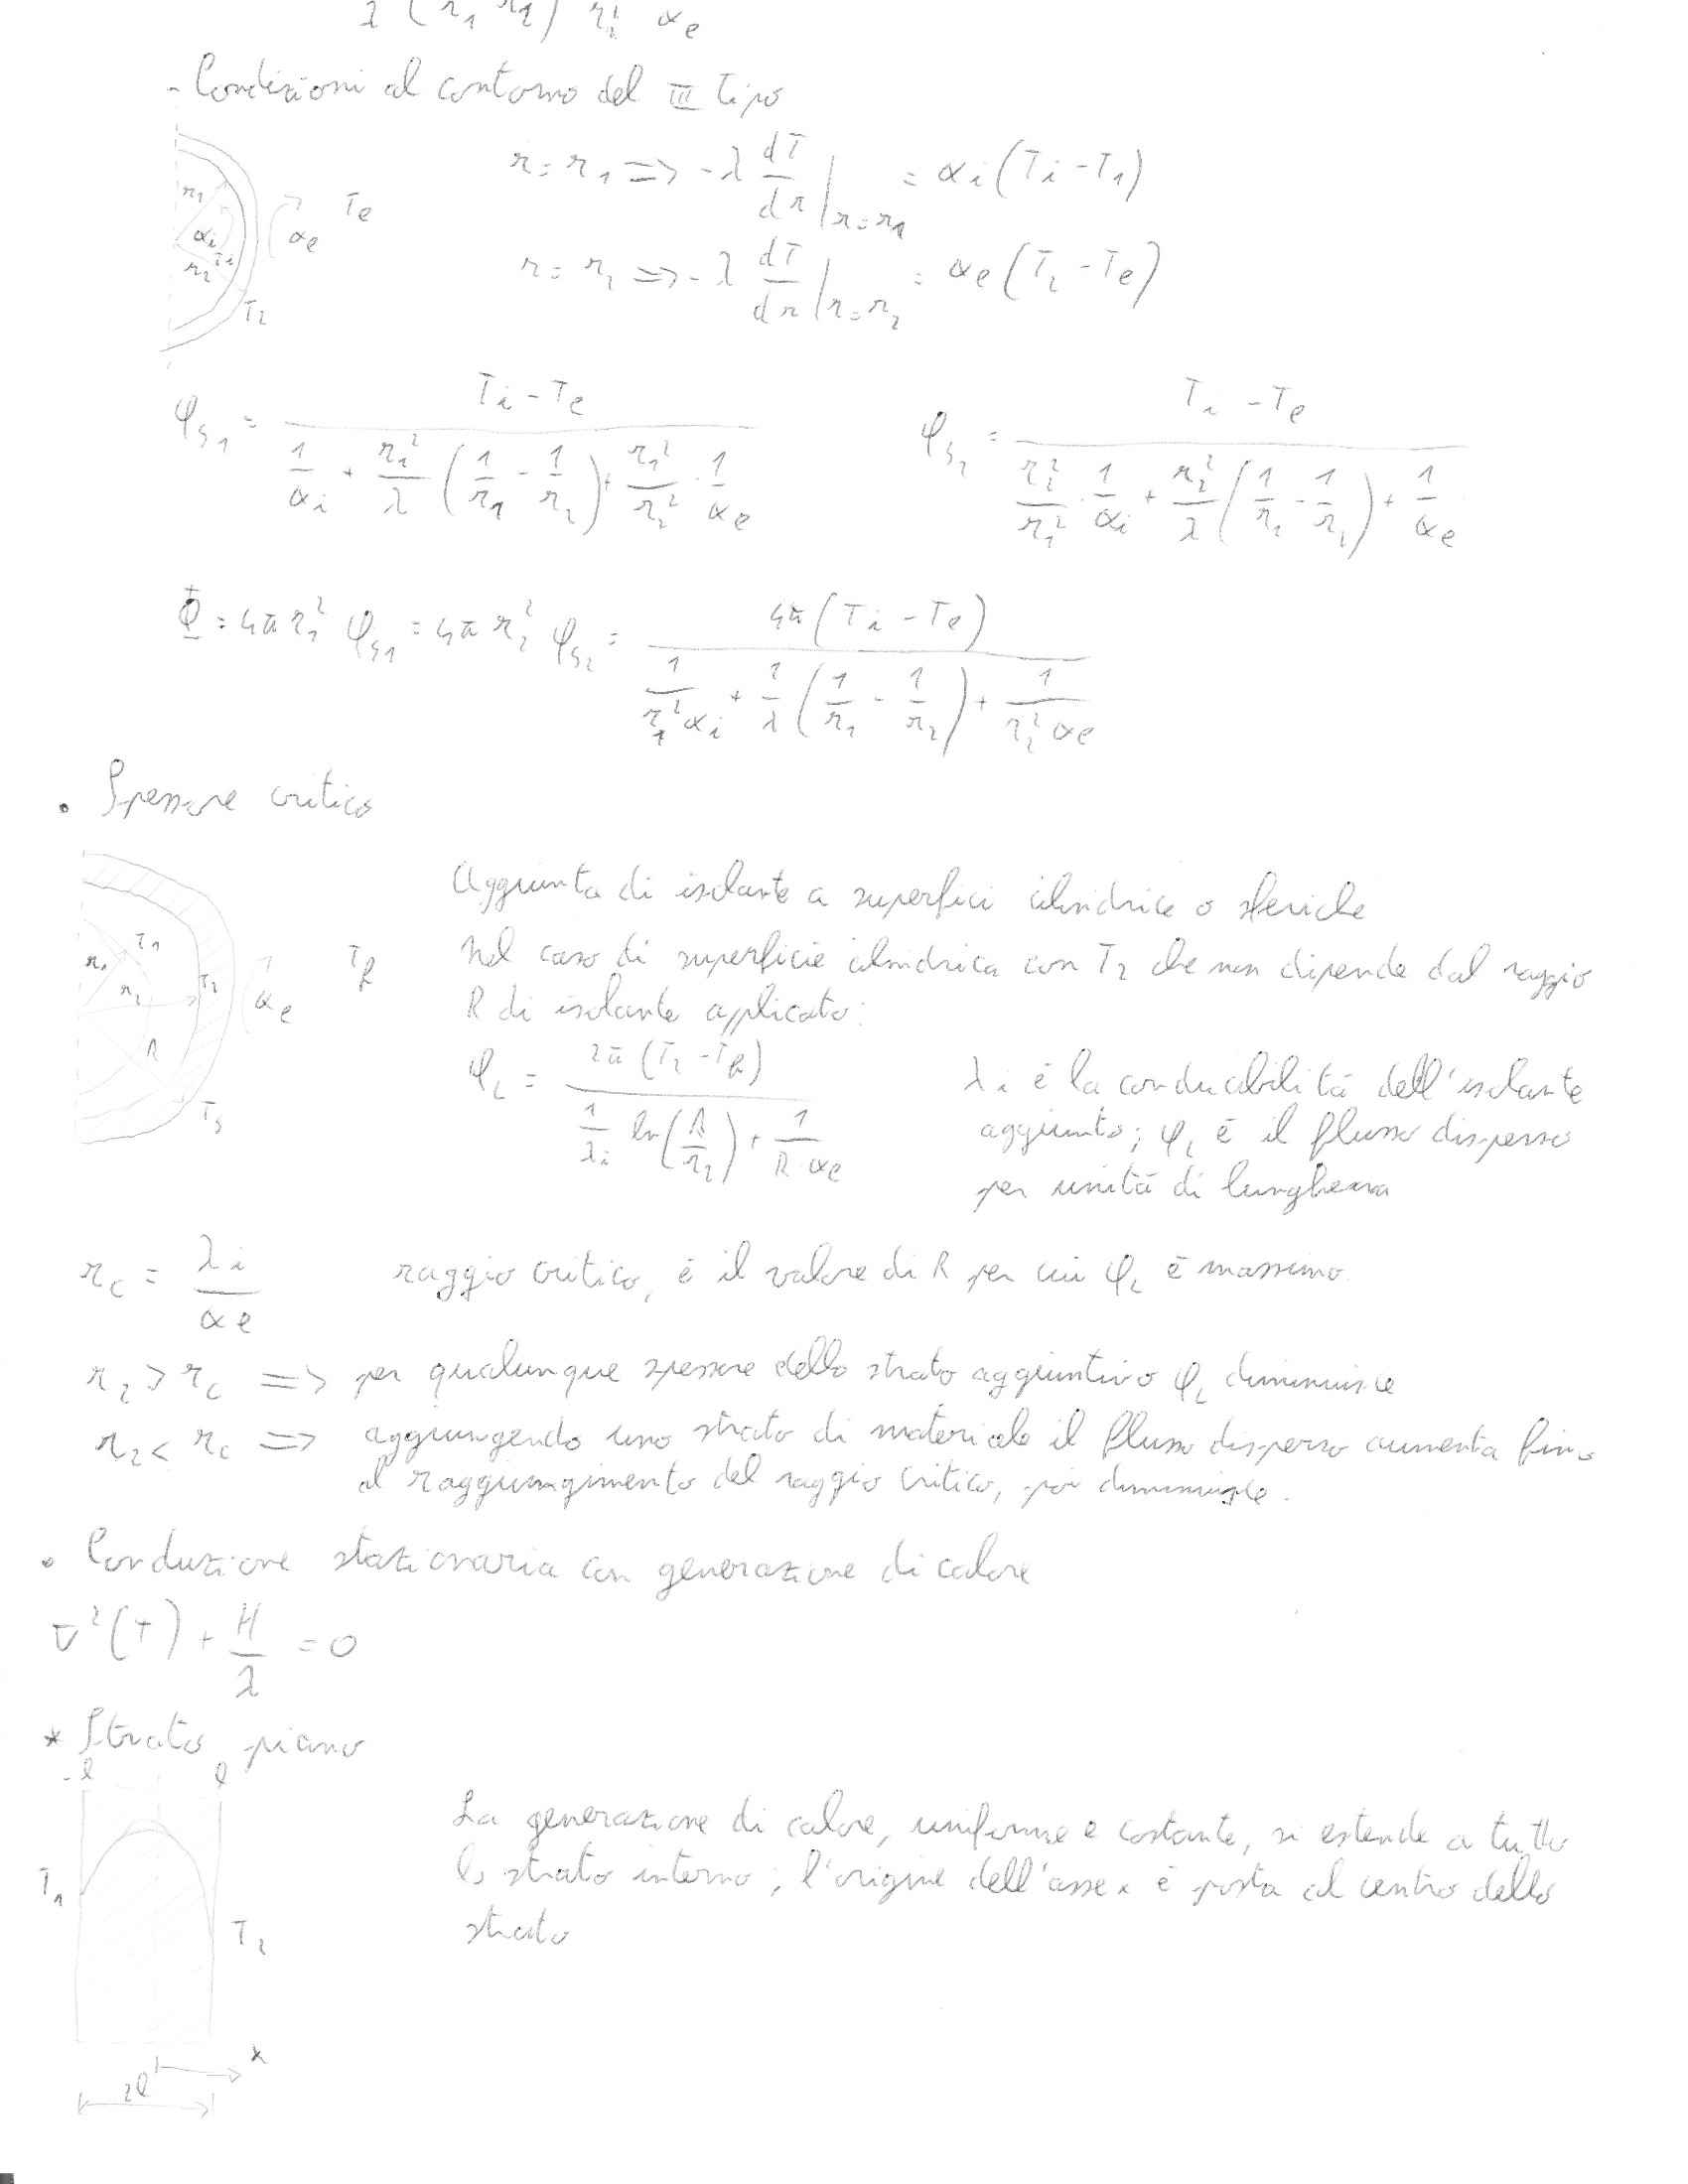 λ (r₁ r₂) r₂² αe
- Condizioni al contorno del III tipo
r = r₁ => -λ dT/dr |r=r₁ = αi (Ti - T₁)
r = r₂ => -λ dT/dr |r=r₂ = αe (T₂ - Te)
r₁ αi Ti r₂ T₂ αe Te
φs₁ = (Ti - Te) / (1/αi + r₁²/λ (1/r₁ - 1/r₂) + r₁²/r₂² · 1/αe)
φs₂ = (Ti - Te) / (r₂²/r₁² · 1/αi + r₂²/λ (1/r₁ - 1/r₂) + 1/αe)
Φ = 4π r₁² φs₁ = 4π r₂² φs₂ = 4π (Ti - Te) / (1/(r₁² αi) + 1/λ (1/r₁ - 1/r₂) + 1/(r₂² αe))
• Spessore critico
r₁ T₁ r₂ T₂ R T₃ αe Tf
Aggiunta di isolante a superfici cilindrice o sferiche
Nel caso di superficie cilindrica con T₂ che non dipende dal raggio
R di isolante applicato:
φL = 2π (T₂ - Tf) / (1/λi ln(R/r₂) + 1/(R αe))
λi è la conducibilità dell'isolante
aggiunto; φL è il flusso disperso
per unità di lunghezza
rc = λi/αe raggio critico, è il valore di R per cui φL è massimo.
r₂ > rc => per qualunque spessore dello strato aggiuntivo φL diminuisce
r₂ < rc => aggiungendo uno strato di materiale il flusso disperso aumenta fino
al raggiungimento del raggio critico, poi diminuisce.
• Conduzione stazionaria con generazione di calore
∇²(T) + H/λ = 0
* Strato piano
-l l
T₁
T₂
La generazione di calore, uniforme e costante, si estende a tutto
lo strato interno; l'origine dell'asse x è posta al centro dello
strato
x
2l